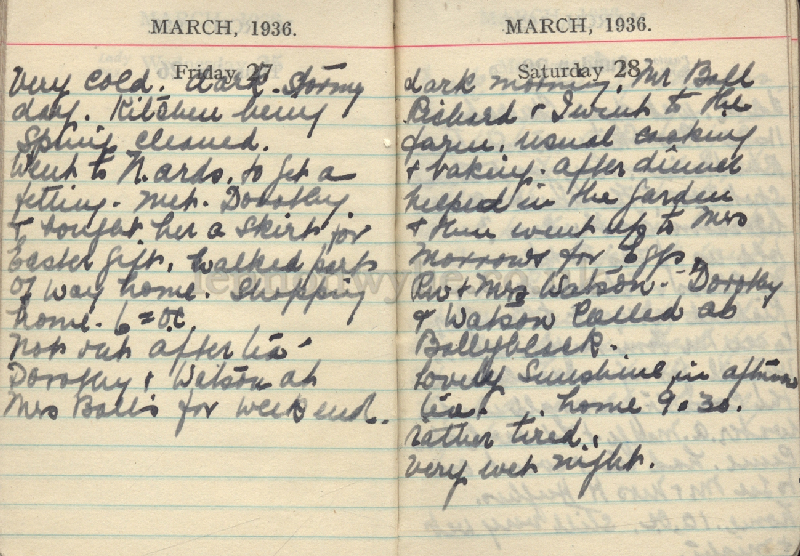 MARCH, 1936.
Friday 27
Very cold. dark. stormy
day. Kitchen being
Spring cleaned.
Went to N. ards, to get a
fitting. met. Dorothy
& bought her a skirt for
Easter gift. walked part
of way home. Shopping
home. 6=oc.
not out after tea.
Dorothy & Watson at
Mrs Ball's for weekend.
MARCH, 1936.
Saturday 28
dark morning. Mr Ball
Richard & I went to the
farm. usual cooking
& baking. after dinner
helped in the garden
& then went up to Mrs
Morrow's for Eggs.
& Mrs Watson - Dorothy
& Watson Called at
Ballyblack.
lovely Sunshine in afternoon
tea. home 9.30.
rather tired.
very wet night.